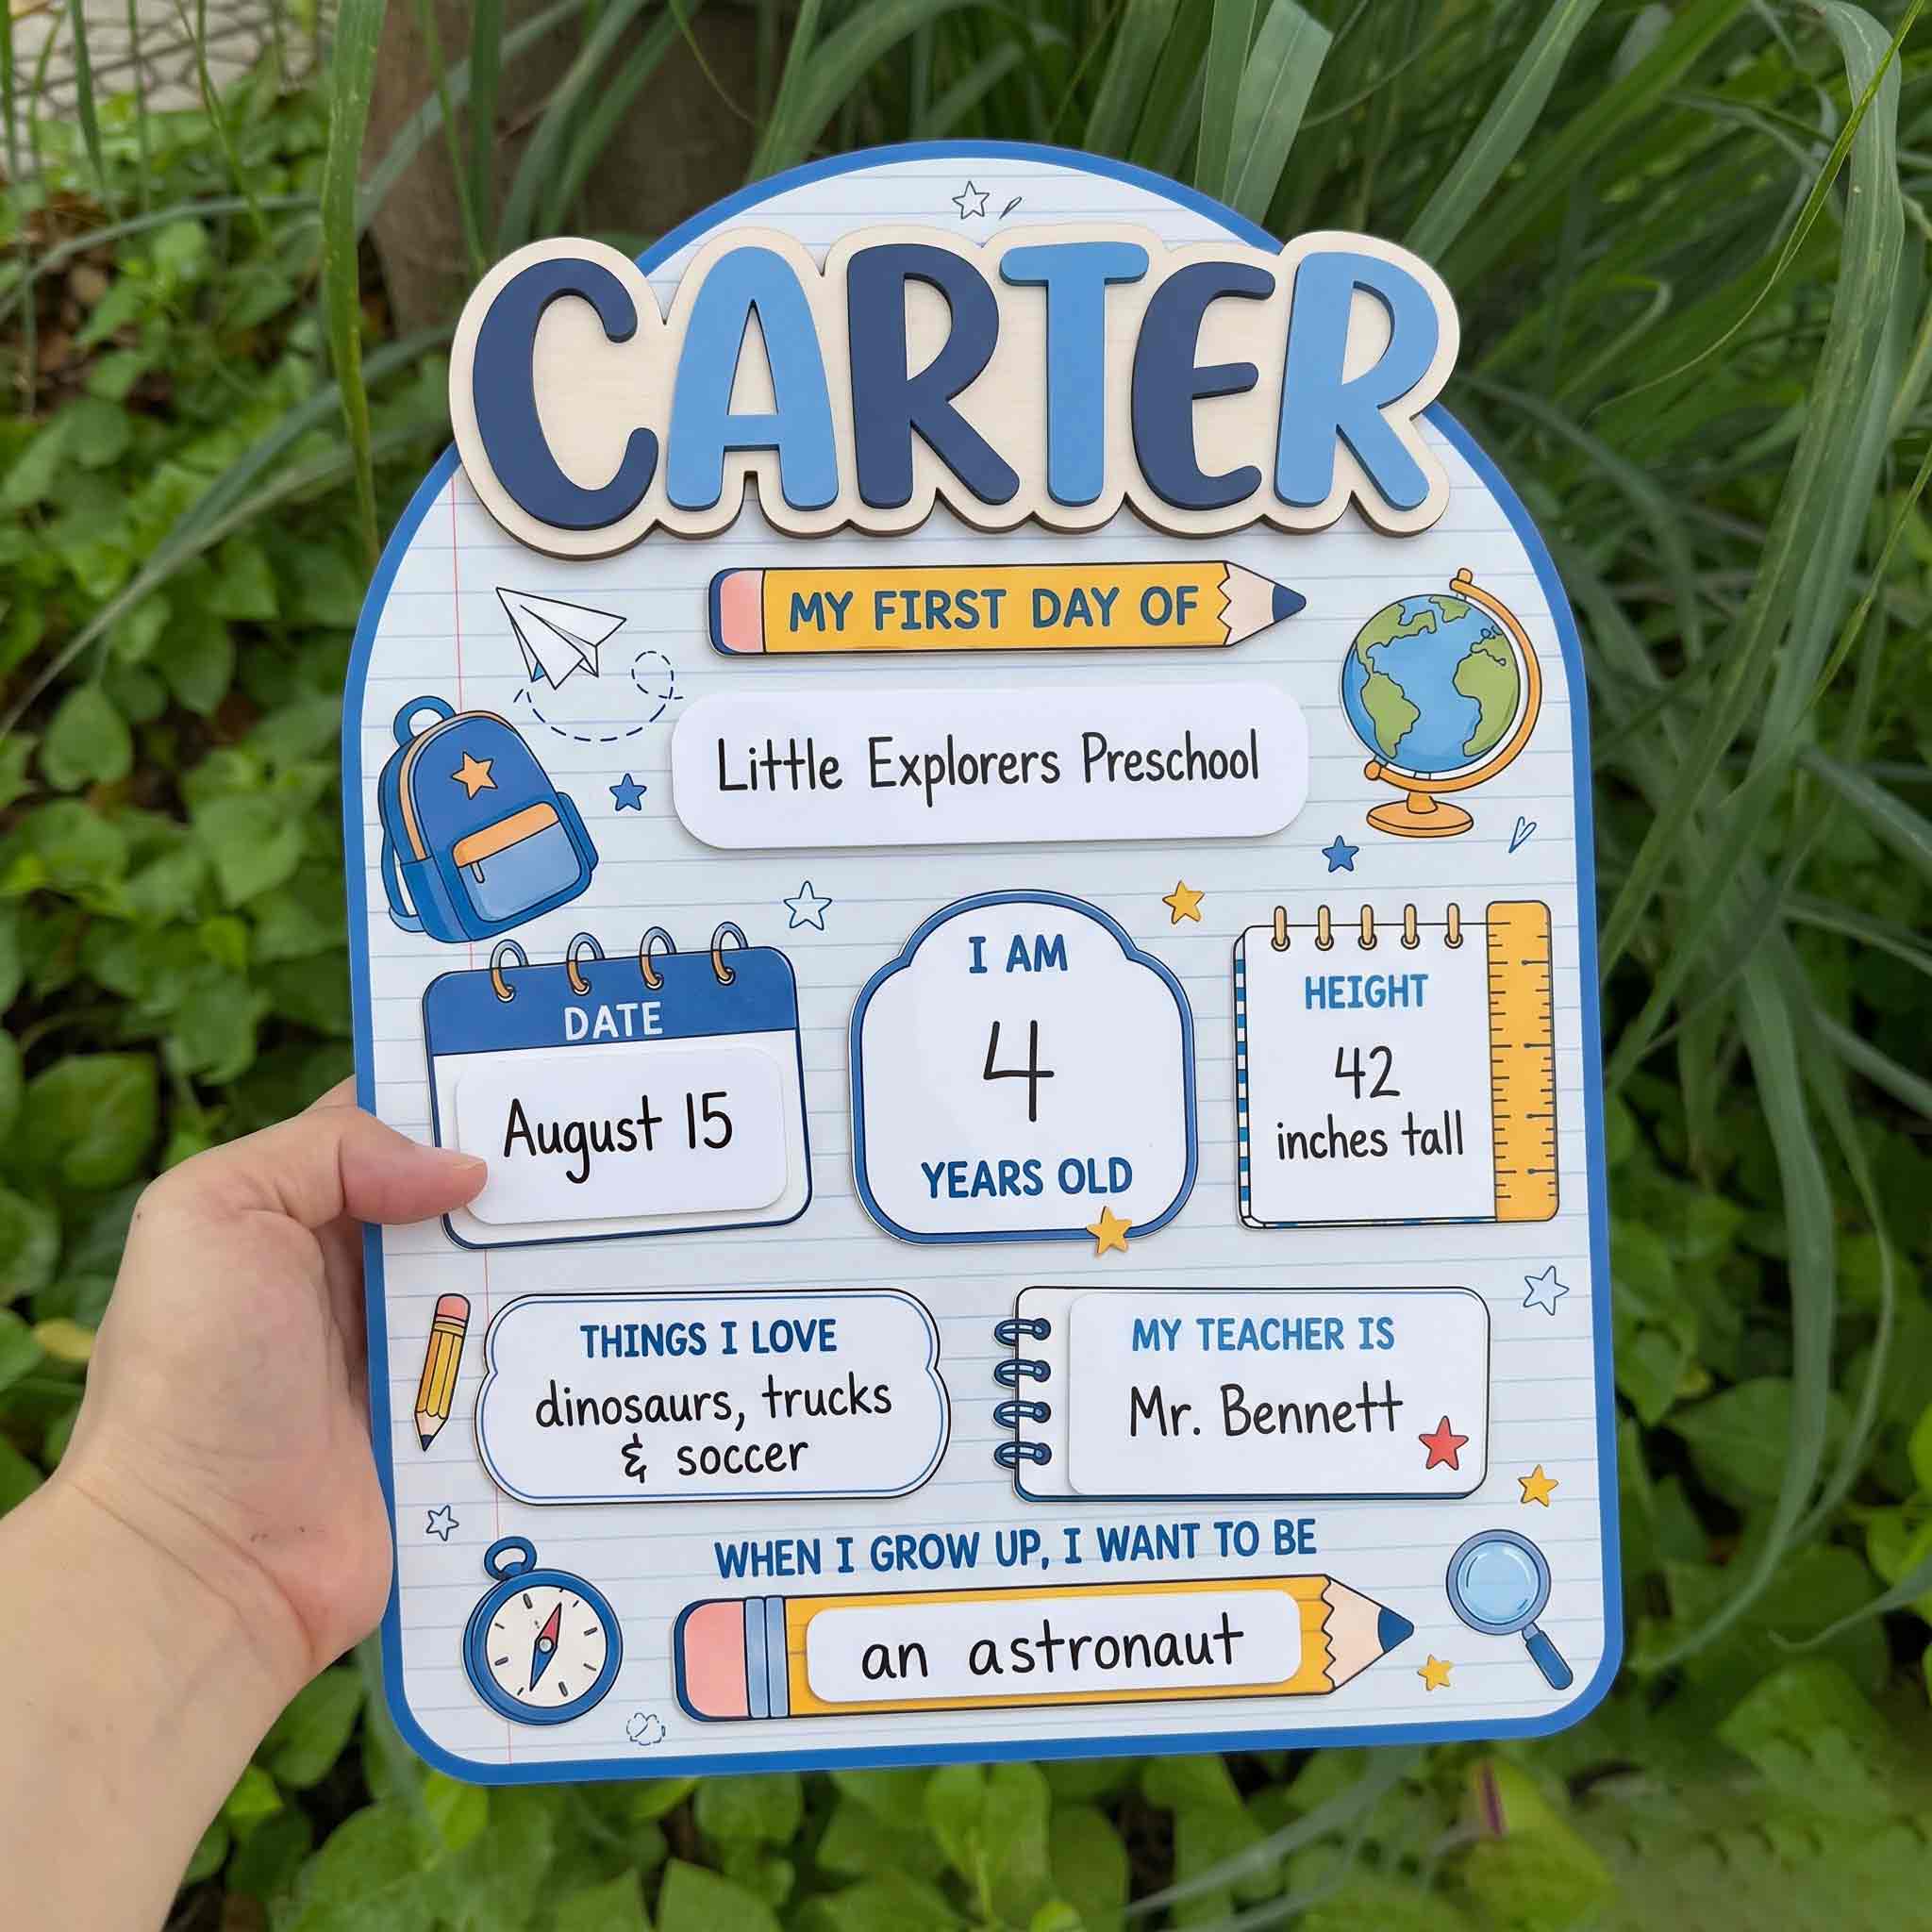 CARTER
MY FIRST DAY OF
Little Explorers Preschool
DATE
August 15
I AM
4
YEARS OLD
HEIGHT
42
inches tall
THINGS I LOVE
dinosaurs, trucks
& soccer
MY TEACHER IS
Mr. Bennett
WHEN I GROW UP, I WANT TO BE
an astronaut